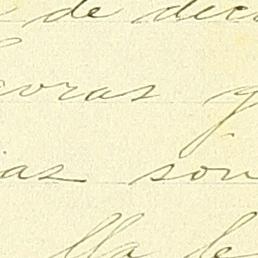 de dec
oras y
ias son
lla de